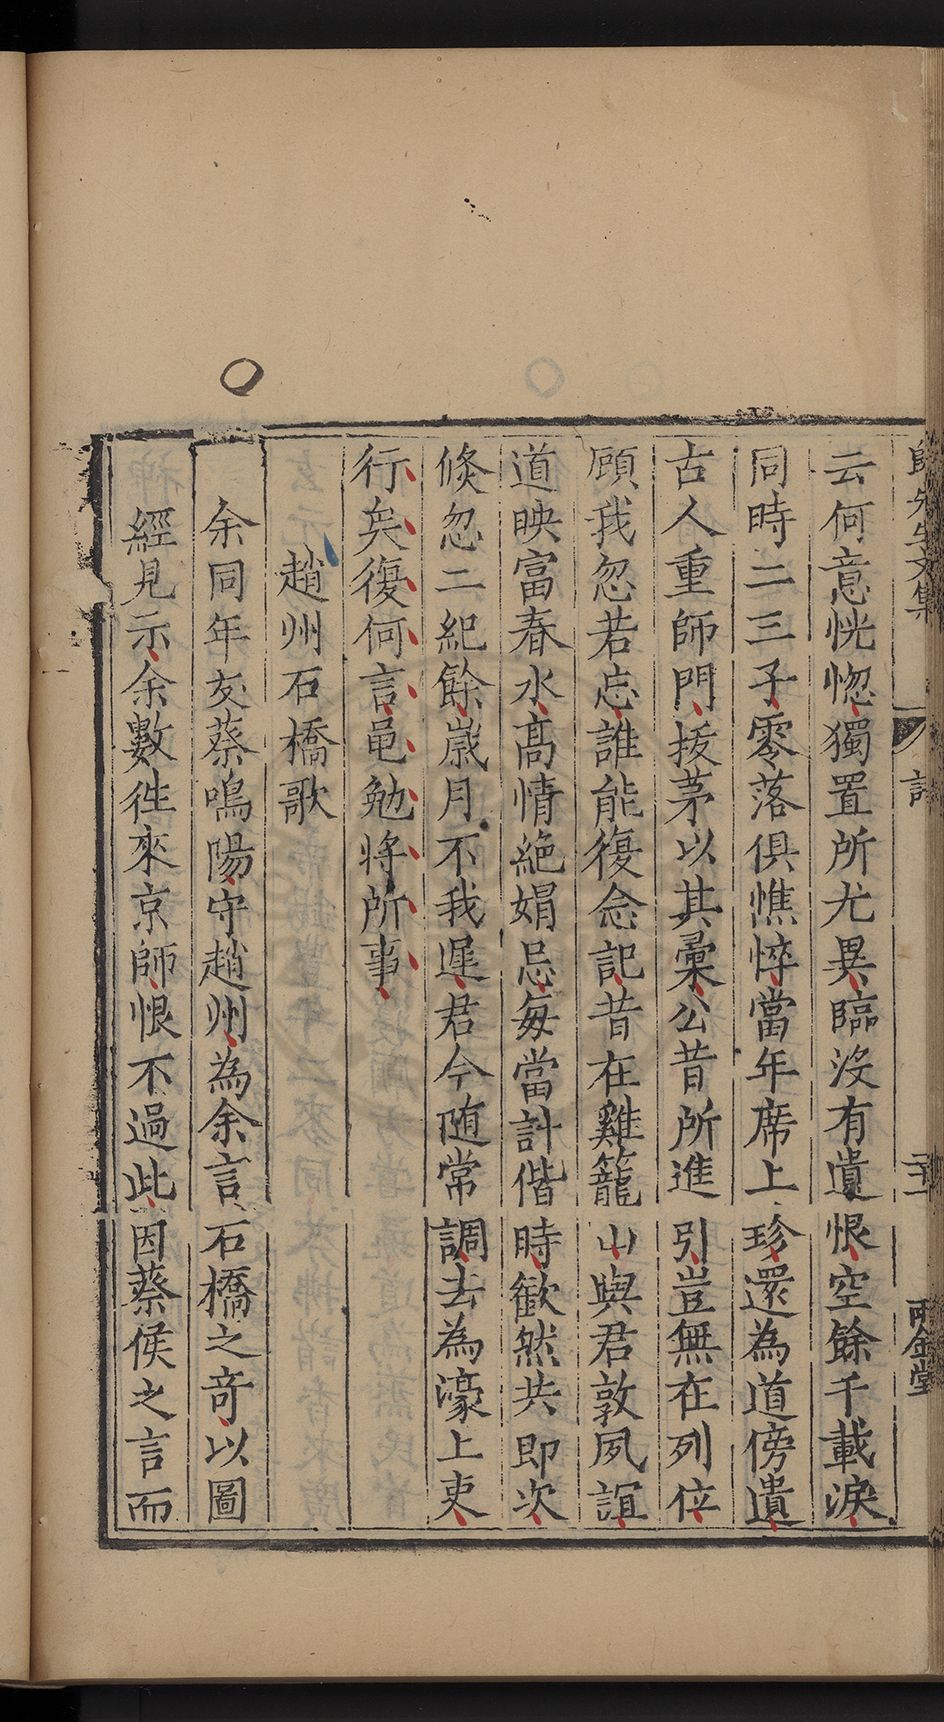 先生文集
詩
兩金堂
云何意恍惚獨置所尤異臨沒有遺恨空餘千載淚
同時二三子零落俱憔悴當年席上珍還為道傍遺
古人重師門拔茅以其彙公昔所進引豈無在列位
顧我忽若忘誰能復念記昔在雞籠山與君敦夙誼
道映富春水高情絕娟忌每當計偕時歡然共即次
倐忽二紀餘歲月不我遲君今随常調去為濠上吏
行矣復何言黽勉将所事
趙州石橋歌
余同年友蔡鳴陽守趙州為余言石橋之奇以圖
經見示余數徃來京師恨不過此因蔡侯之言而